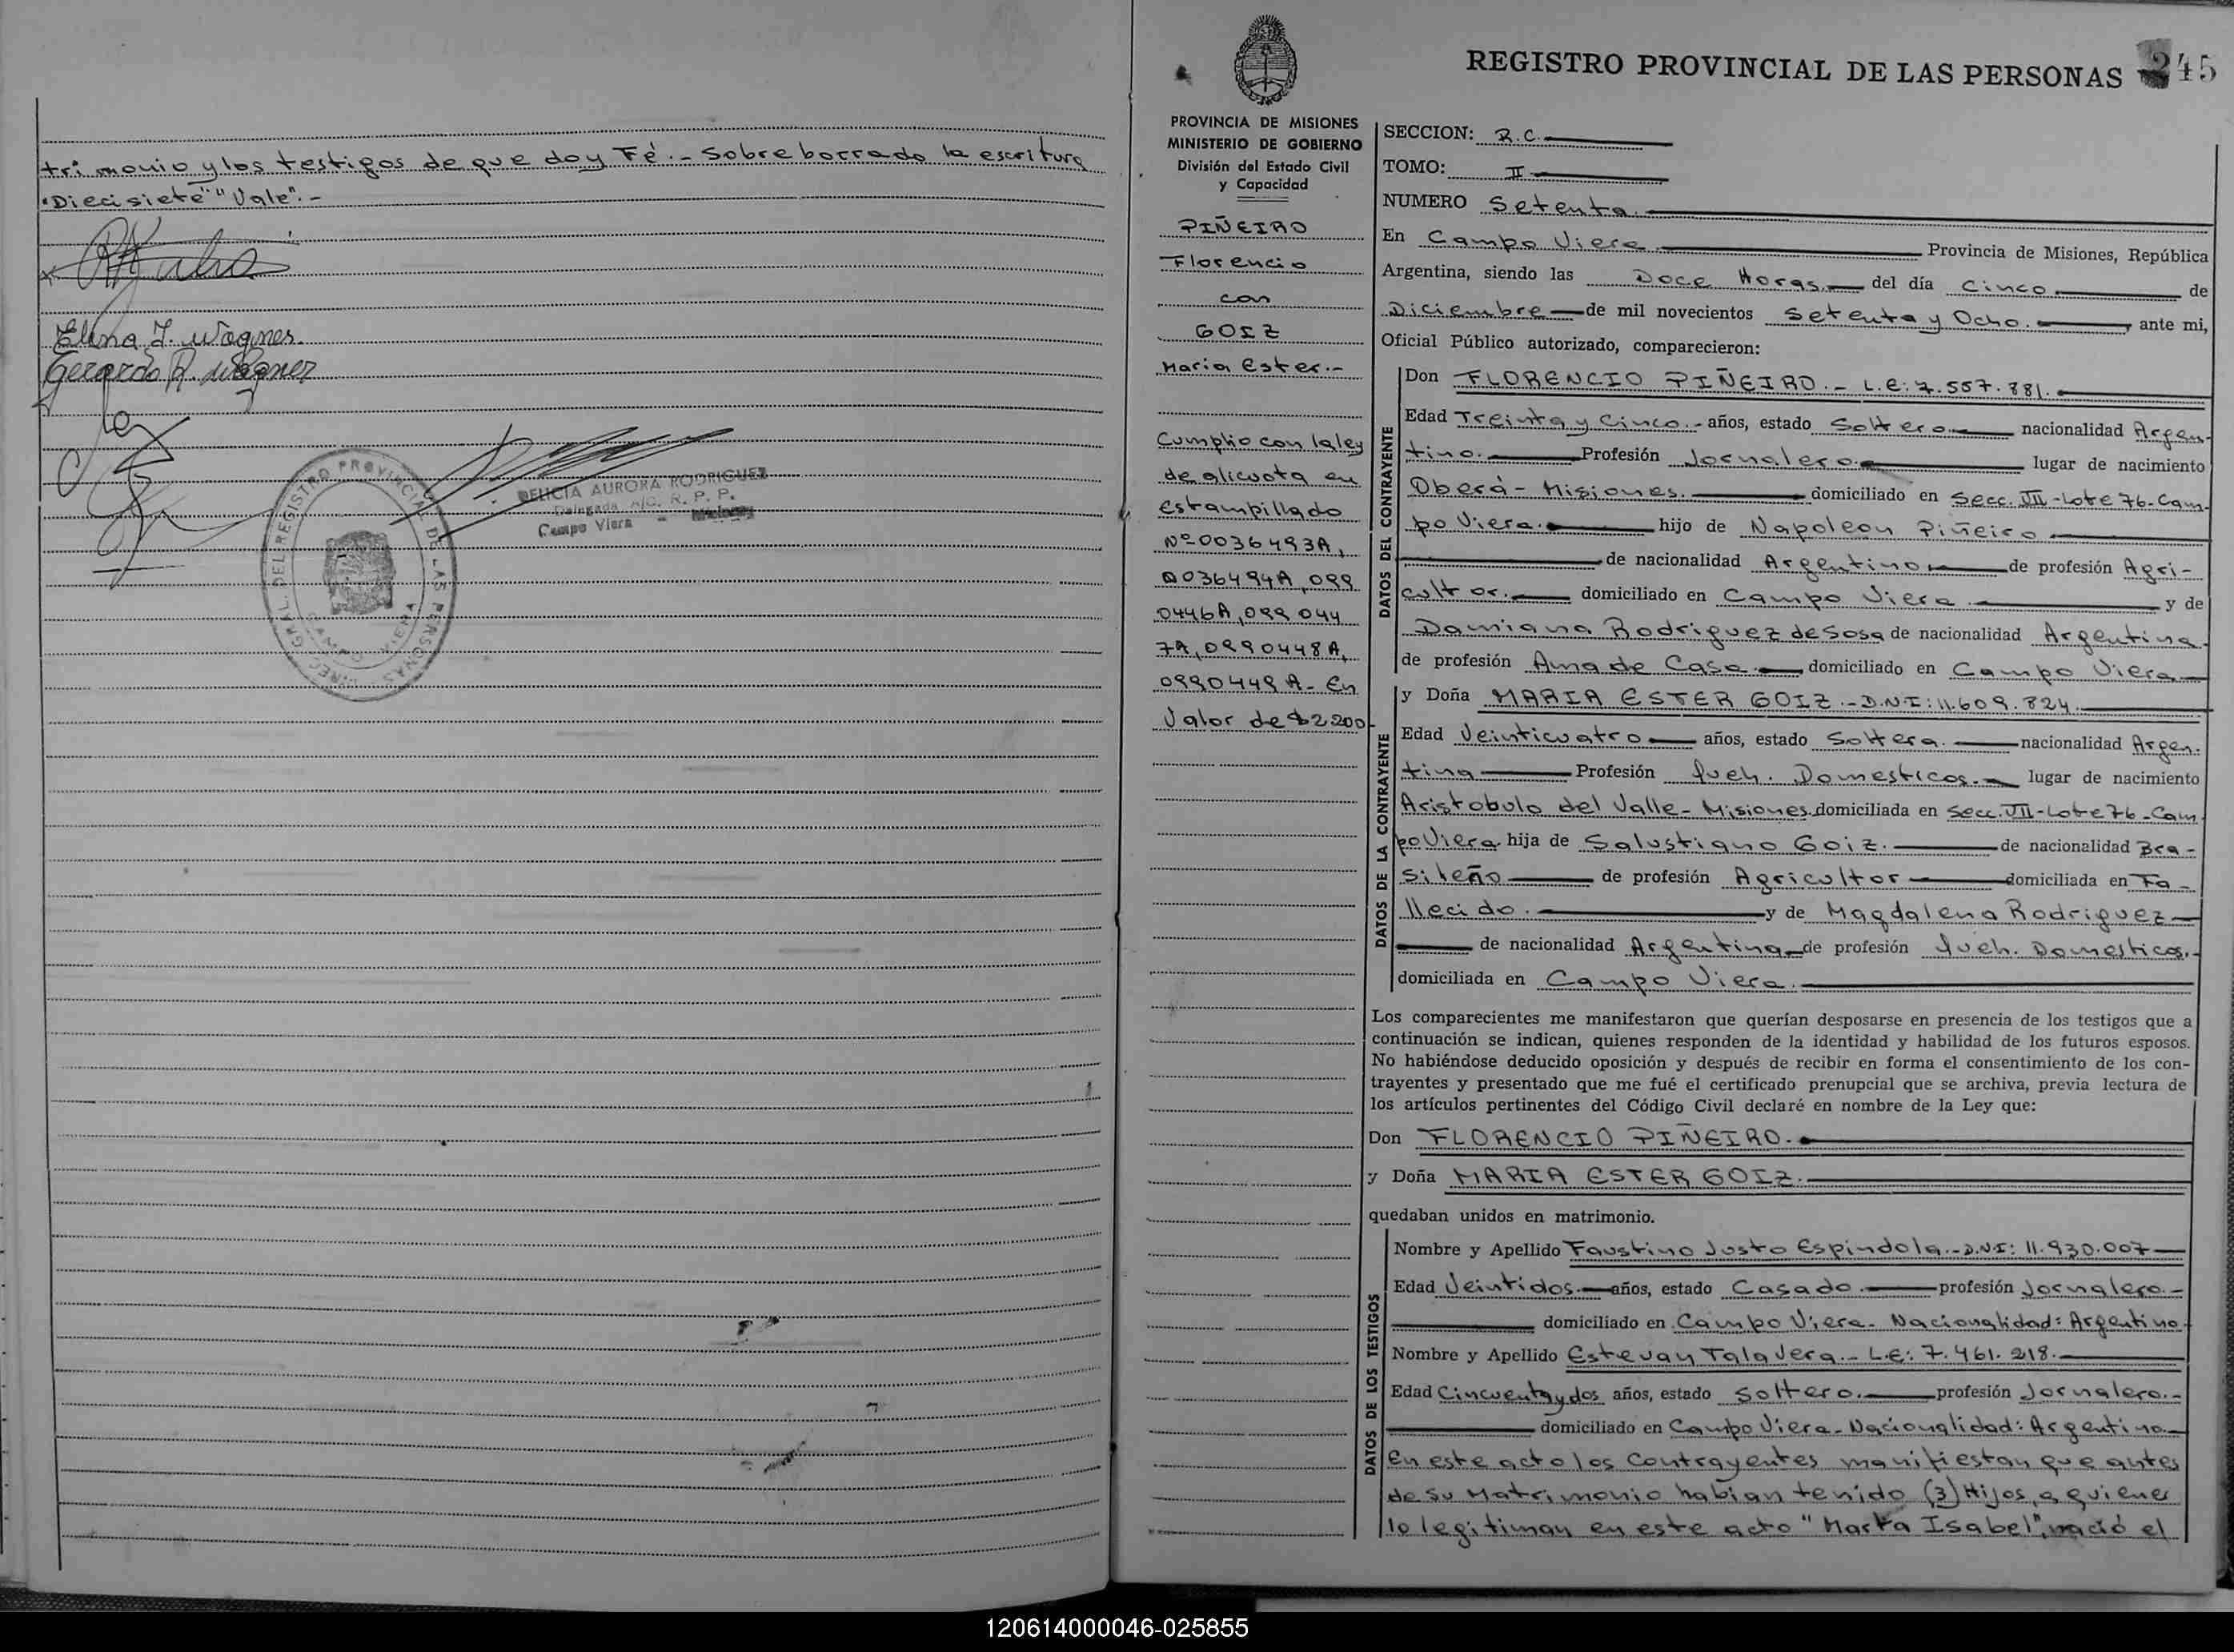 trimonio y los testigos de que doy Fé.- Sobre borrado la escritura
"Diecisiete" "Vale".-
Elena J. Wagner.
Gerardo R. Wagner
DELICIA AURORA RODRIGUEZ
Delegada A/C. R. P. P.
Campo Viera - Misiones
DIREC. GRAL. DEL REGISTRO PROVINCIAL DE LAS PERSONAS
CAMPO VIERA
REGISTRO PROVINCIAL DE LAS PERSONAS 245
PROVINCIA DE MISIONES
MINISTERIO DE GOBIERNO
División del Estado Civil
y Capacidad
PIÑEIRO
Florencio
con
GOIZ
Maria Ester.-
Cumplio con la ley
de alicuota en
estampillado
Nº 0036493A,
0036494A, 099
0446A, 099044
7A, 0990448A,
0990449A- En
Valor de $2200
SECCION: R.C.
TOMO: II
NUMERO Setenta.
En Campo Viera Provincia de Misiones, República
Argentina, siendo las Doce Horas. del día Cinco de
Diciembre de mil novecientos Setenta y Ocho. ante mi,
Oficial Público autorizado, comparecieron:
DATOS DEL CONTRAYENTE
Don FLORENCIO PIÑEIRO.- L.E: 7.557.881.
Edad Treinta y Cinco.- años, estado Soltero nacionalidad Argen-
tino. Profesión Jornalero. lugar de nacimiento
Oberá- Misiones. domiciliado en Secc. VII-Lote 76-Cam-
po Viera. hijo de Napoleon Piñeiro
de nacionalidad Argentino de profesión Agri-
cultor. domiciliado en Campo Viera. y de
Damiana Rodriguez de Sosa de nacionalidad Argentina.
de profesión Ama de Casa. domiciliado en Campo Viera
DATOS DE LA CONTRAYENTE
y Doña MARIA ESTER GOIZ.- D.N.I: 11.609.824.
Edad Veinticuatro años, estado Soltera. nacionalidad Argen-
tina Profesión Queh. Domesticos. lugar de nacimiento
Aristobulo del Valle- Misiones. domiciliada en Secc. VII-Lote 76-Cam
po Viera hija de Salustiano Goiz. de nacionalidad Bra-
sileño de profesión Agricultor domiciliada en Fa-
llecido. y de Magdalena Rodriguez
de nacionalidad Argentina de profesión Queh. Domesticos.-
domiciliada en Campo Viera.
Los comparecientes me manifestaron que querían desposarse en presencia de los testigos que a
continuación se indican, quienes responden de la identidad y habilidad de los futuros esposos.
No habiéndose deducido oposición y después de recibir en forma el consentimiento de los con-
trayentes y presentado que me fué el certificado prenupcial que se archiva, previa lectura de
los artículos pertinentes del Código Civil declaré en nombre de la Ley que:
Don FLORENCIO PIÑEIRO.
y Doña MARIA ESTER GOIZ.
quedaban unidos en matrimonio.
DATOS DE LOS TESTIGOS
Nombre y Apellido Faustino Justo Espindola.- D.N.I: 11.930.007
Edad Veintidos. años, estado Casado. profesión Jornalero.-
domiciliado en Campo Viera- Nacionalidad: Argentino.
Nombre y Apellido Estevan Talavera.- L.E: 7.461.218.
Edad Cincuenta y dos años, estado Soltero. profesión Jornalero.-
domiciliado en Campo Viera- Nacionalidad: Argentino.
En este acto los Contrayentes manifiestan que antes
de su Matrimonio habían tenido (3) Hijos, a quienes
lo legitiman en este acto "Marta Isabel", nació el
120614000046-025855